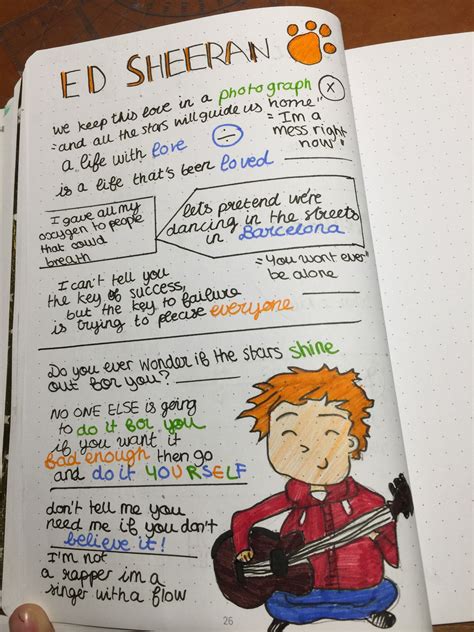 ED SHEERAN
we keep this love in a photograph
"and all the stars will guide us home"
x
÷
a life with love
is a life that's been loved
"I'm a
mess right
now"
I gave all my
oxygen to people
that could
breath
lets pretend we're
dancing in the streets
in Barcelona
"You wont ever
be alone
I can't tell you
the key of success,
but the key to failure
is trying to please everyone
Do you ever wonder if the stars shine
out for you?
NO ONE ELSE is going
to do it for you
if you want it
bad enough then go
and do it YOURSELF
don't tell me you
need me if you don't
believe it!
I'm not
a rapper im a
singer with a flow
26